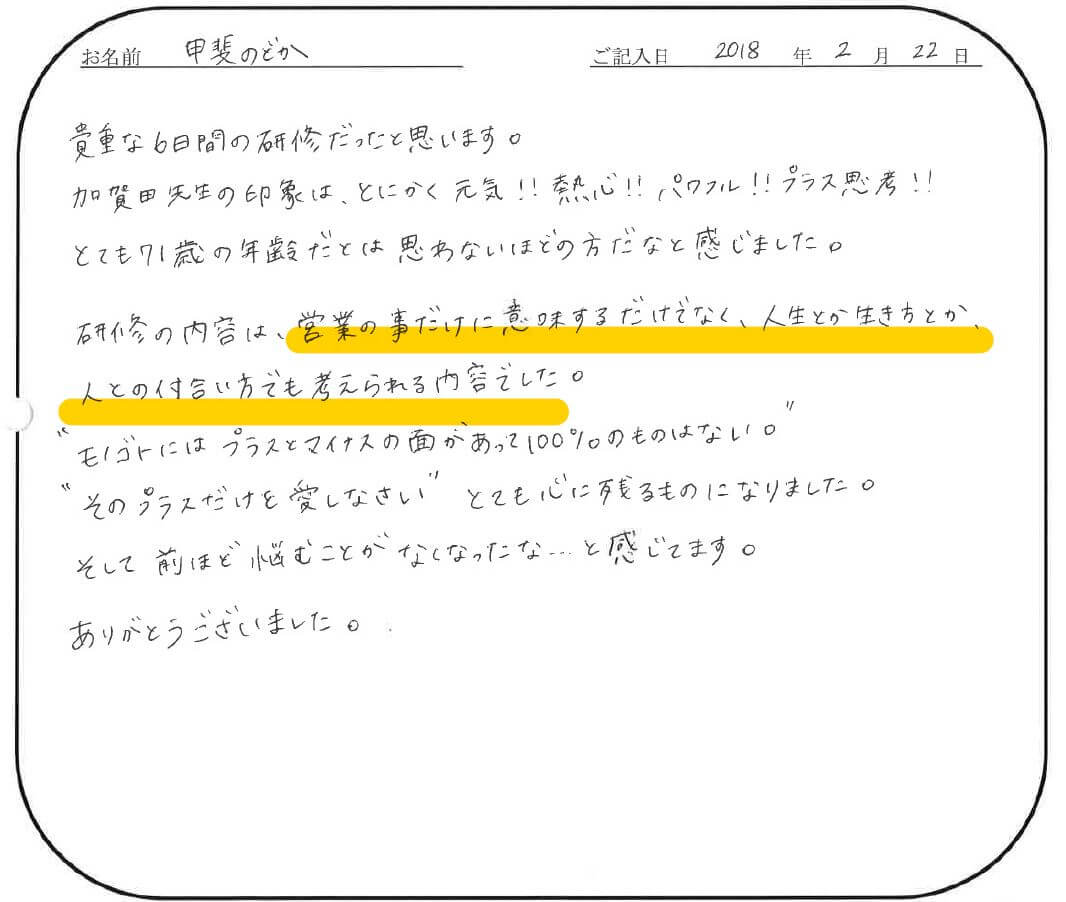 お名前 甲斐のどか ご記入日 2018 年 2 月 22 日
貴重な6日間の研修だったと思います。
加賀田先生の印象は、とにかく元気!!熱心!!パワフル!!プラス思考!!
とても71歳の年齢だとは思わないほどの方だなと感じました。
研修の内容は、営業の事だけに意味するだけでなく、人生とか生き方とか、
人との付合い方でも考えられる内容でした。
“モノゴトにはプラスとマイナスの面があって100%のものはない。”
“そのプラスだけを愛しなさい”とても心に残るものになりました。
そして前ほど悩むことがなくなったな…と感じてます。
ありがとうございました。